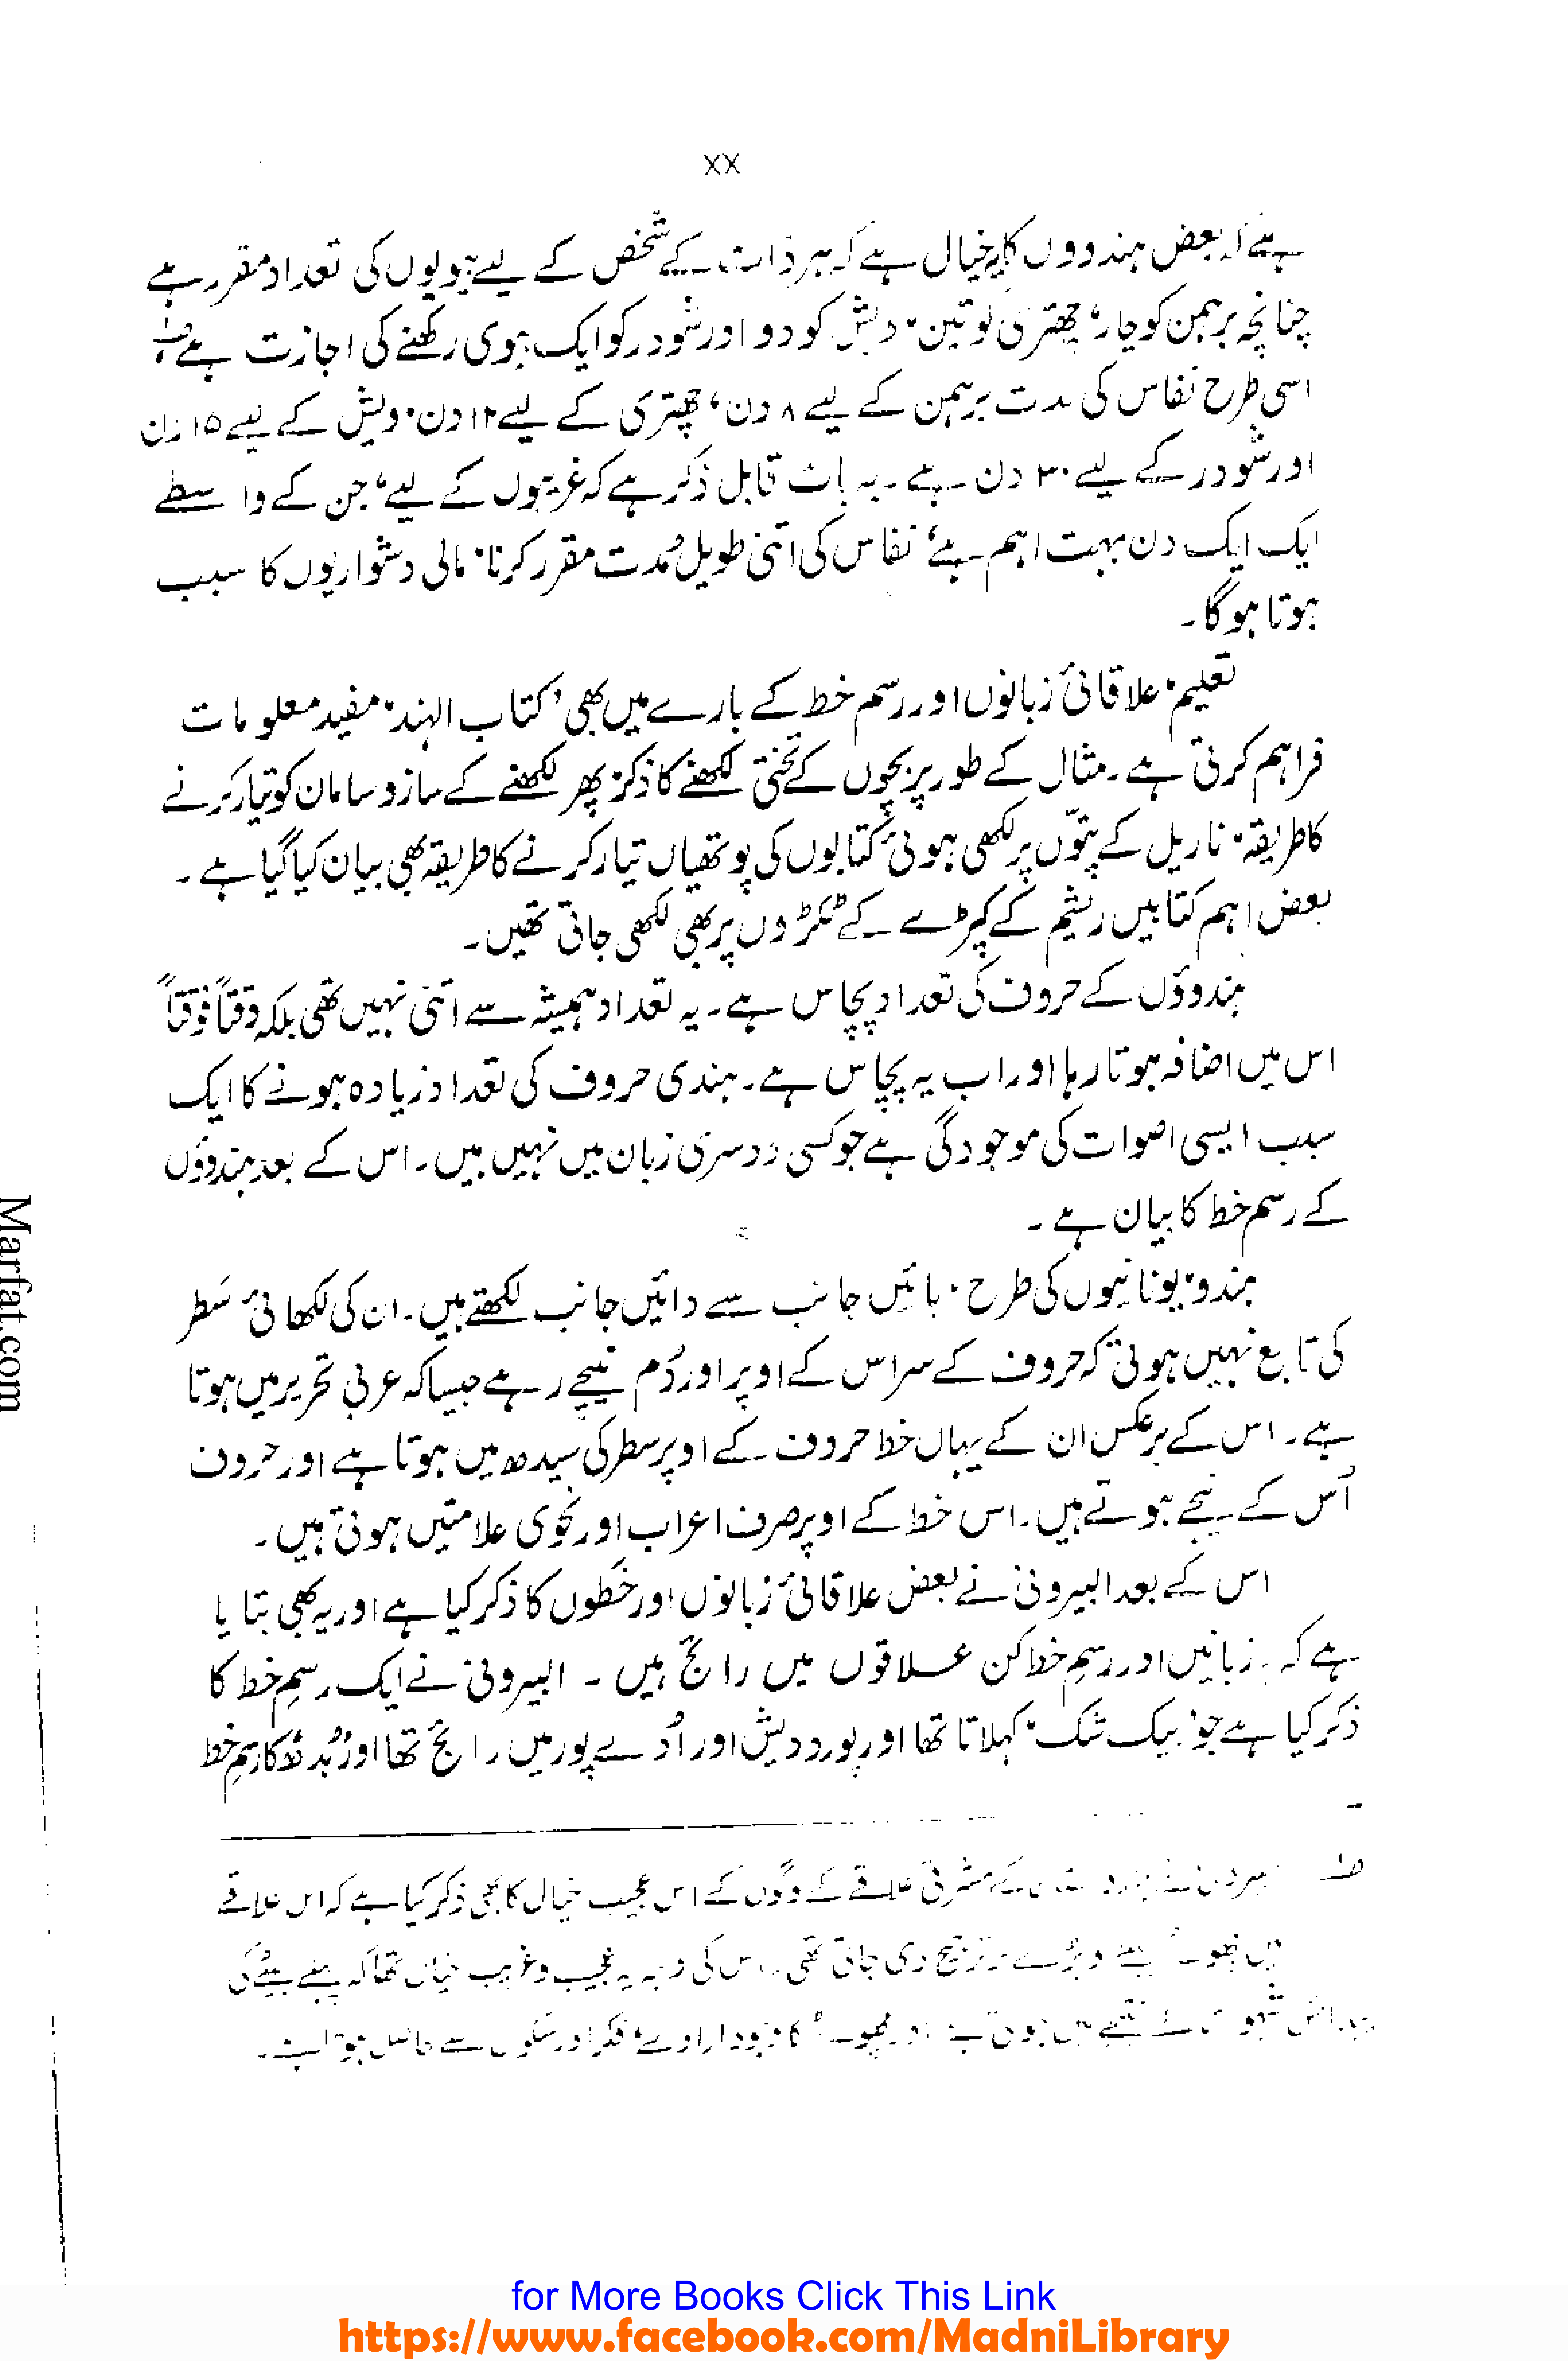 xx
ہے کہ بعض ہندووں کا یہ خیال ہے کہ ہر ذات کے شخص کے لیے بیویوں کی تعداد مقرر ہے
چنانچہ برہمن کو چار، چھتری کو تین، ویش کو دو اور شودر کو ایک بیوی رکھنے کی اجازت ہے
اسی طرح نفاس کی مدت برہمن کے لیے ۸ دن، چھتری کے لیے ۱۲ دن، ویش کے لیے ۱۵ دن
اور شودر کے لیے ۳۰ دن ہے۔ یہ بات قابل ذکر ہے کہ غریبوں کے لیے، جن کے واسطے
ایک ایک دن بہت اہم ہے، نفاس کی اتنی طویل مُدت مقرر کرنا، مالی دشواریوں کا سبب
ہوتا ہوگا۔
تعلیم، علاقائی زبانوں اور رسم خط کے بارے میں بھی ’کتاب الہند‘ مفید معلومات
فراہم کرتی ہے۔ مثال کے طور پر بچوں کے تختی لکھنے کا ذکر، پھر لکھنے کے ساز و سامان کو تیار کرنے
کا طریقہ، ناریل کے پتوّں پر لکھی ہوئی کتابوں کی پوتھیاں تیار کرنے کا طریقہ بھی بیان کیا گیا ہے۔
بعض اہم کتابیں ریشم کے کپڑے کے ٹکڑوں پر بھی لکھی جاتی تھیں۔
ہندوؤں کے حروف کی تعداد پچاس ہے۔ یہ تعداد ہمیشہ سے اتنی نہیں تھی بلکہ وقتاً فوقتاً
اس میں اضافہ ہوتا رہا اور اب یہ پچاس ہے۔ ہندی حروف کی تعداد زیادہ ہونے کا ایک
سبب ایسی اصوات کی موجودگی ہے جو کسی دوسری زبان میں نہیں ہیں۔ اس کے بعد ہندوؤں
کے رسم خط کا بیان ہے۔
ہندو، یونانیوں کی طرح، بائیں جانب سے دائیں جانب لکھتے ہیں۔ ان کی لکھائی سَطر
کی تابع نہیں ہوتی کہ حروف کے سر اس کے اوپر اور دُم نیچے رہے جیسا کہ عربی تحریر میں ہوتا
ہے۔ اس کے برعکس ان کے یہاں خط حروف کے اوپر سطر کی سیدھ میں ہوتا ہے اور حروف
اُس کے نیچے ہوتے ہیں۔ اس خط کے اوپر صرف اعراب اور نحوی علامتیں ہوتی ہیں۔
اس کے بعد البیرونی نے بعض علاقائی زبانوں اور خطوں کا ذکر کیا ہے اور یہ بھی بتایا
ہے کہ یہ زبانیں اور رسمِ خط کن علاقوں میں رائج ہیں۔ البیرونی نے ایک رسمِ خط کا
ذکر کیا ہے جو ’بیک شک‘ کہلاتا تھا اور پورو دیش اور اُدے پور میں رائج تھا اور بُدھ کا رسمِ خط
کے مشرقی علاقے کے لوگوں کے اس عجیب خیال کا بھی ذکر کیا ہے کہ اس علاقے
میں چھوٹے بیٹے کو بڑے پر ترجیح دی جاتی تھی۔ اس کی وجہ یہ عجیب و غریب خیال تھا کہ پہلے بیٹے کی
کے نتیجے میں ہوتی ہے اور چھوٹے کا وجود ارادے، فکر اور سکون سے حاصل ہوتا ہے۔
Marfat.com
for More Books Click This Link
https://www.facebook.com/MadniLibrary